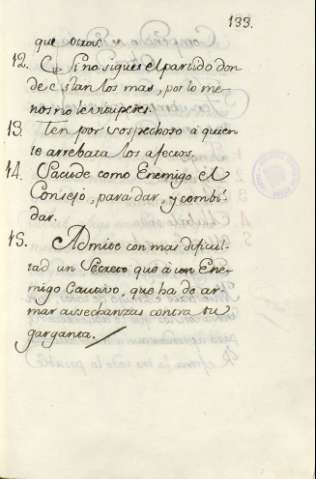 133.
que
12. Si no sigues el partido don
de estan los mas, por lo me
nos no le vituperes.
13. Ten por sospechoso à quien
te arrebata los afectos.
14. Sacude como Enemigo el
Consejo, para dar, y combi
dar.
15. Admite con mas dificul
tad un Secreto que à un Ene
migo Cautivo, que ha de ar
mar assechanzas contra tu
garganta.